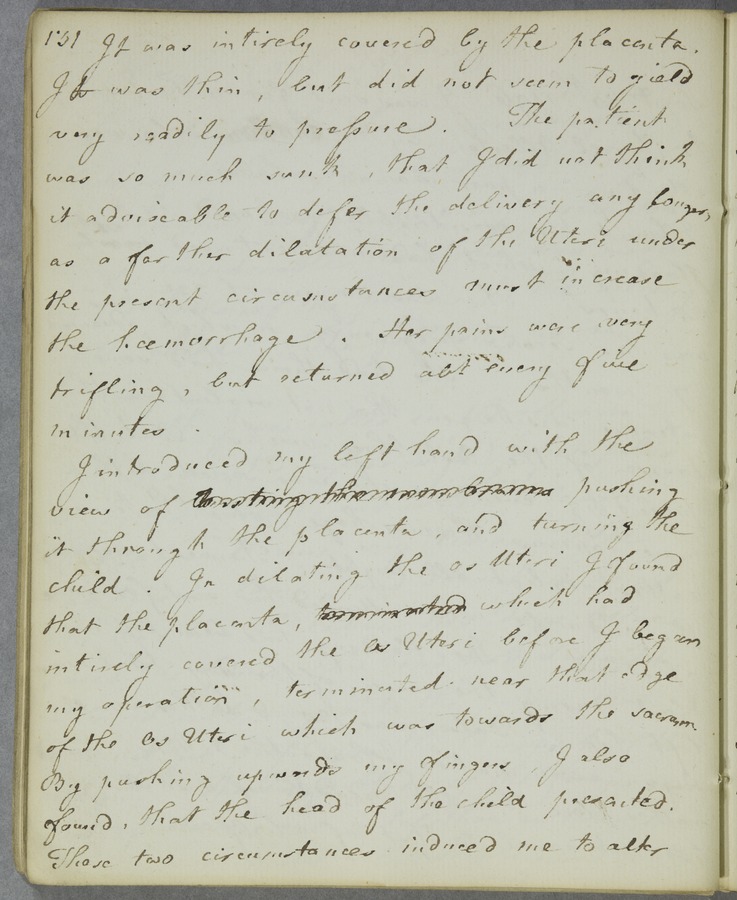 131 It was intirely covered by the placenta.
It was thin, but did not seem to yield
very readily to pressure. The patient
was so much sunk, that I did not think
it adviseable to defer the delivery any longer,
as a farther dilatation of the Uteri under
the present circumstances must increase
the hæmorrhage. Her pains were very
trifling, but returned abt every five
minutes.
I introduced my left hand with the
view of bursting the membranes pushing
it through the placenta, and turning the
child. In dilating the os Uteri I found
that the placenta, terminated which had
intirely covered the Os Uteri before I began
my operation, terminated near that edge
of the Os Uteri which was towards the sacrum
By pushing upwards my fingers, I also
found, that the head of the child presented.
These two circumstances induced me to alter